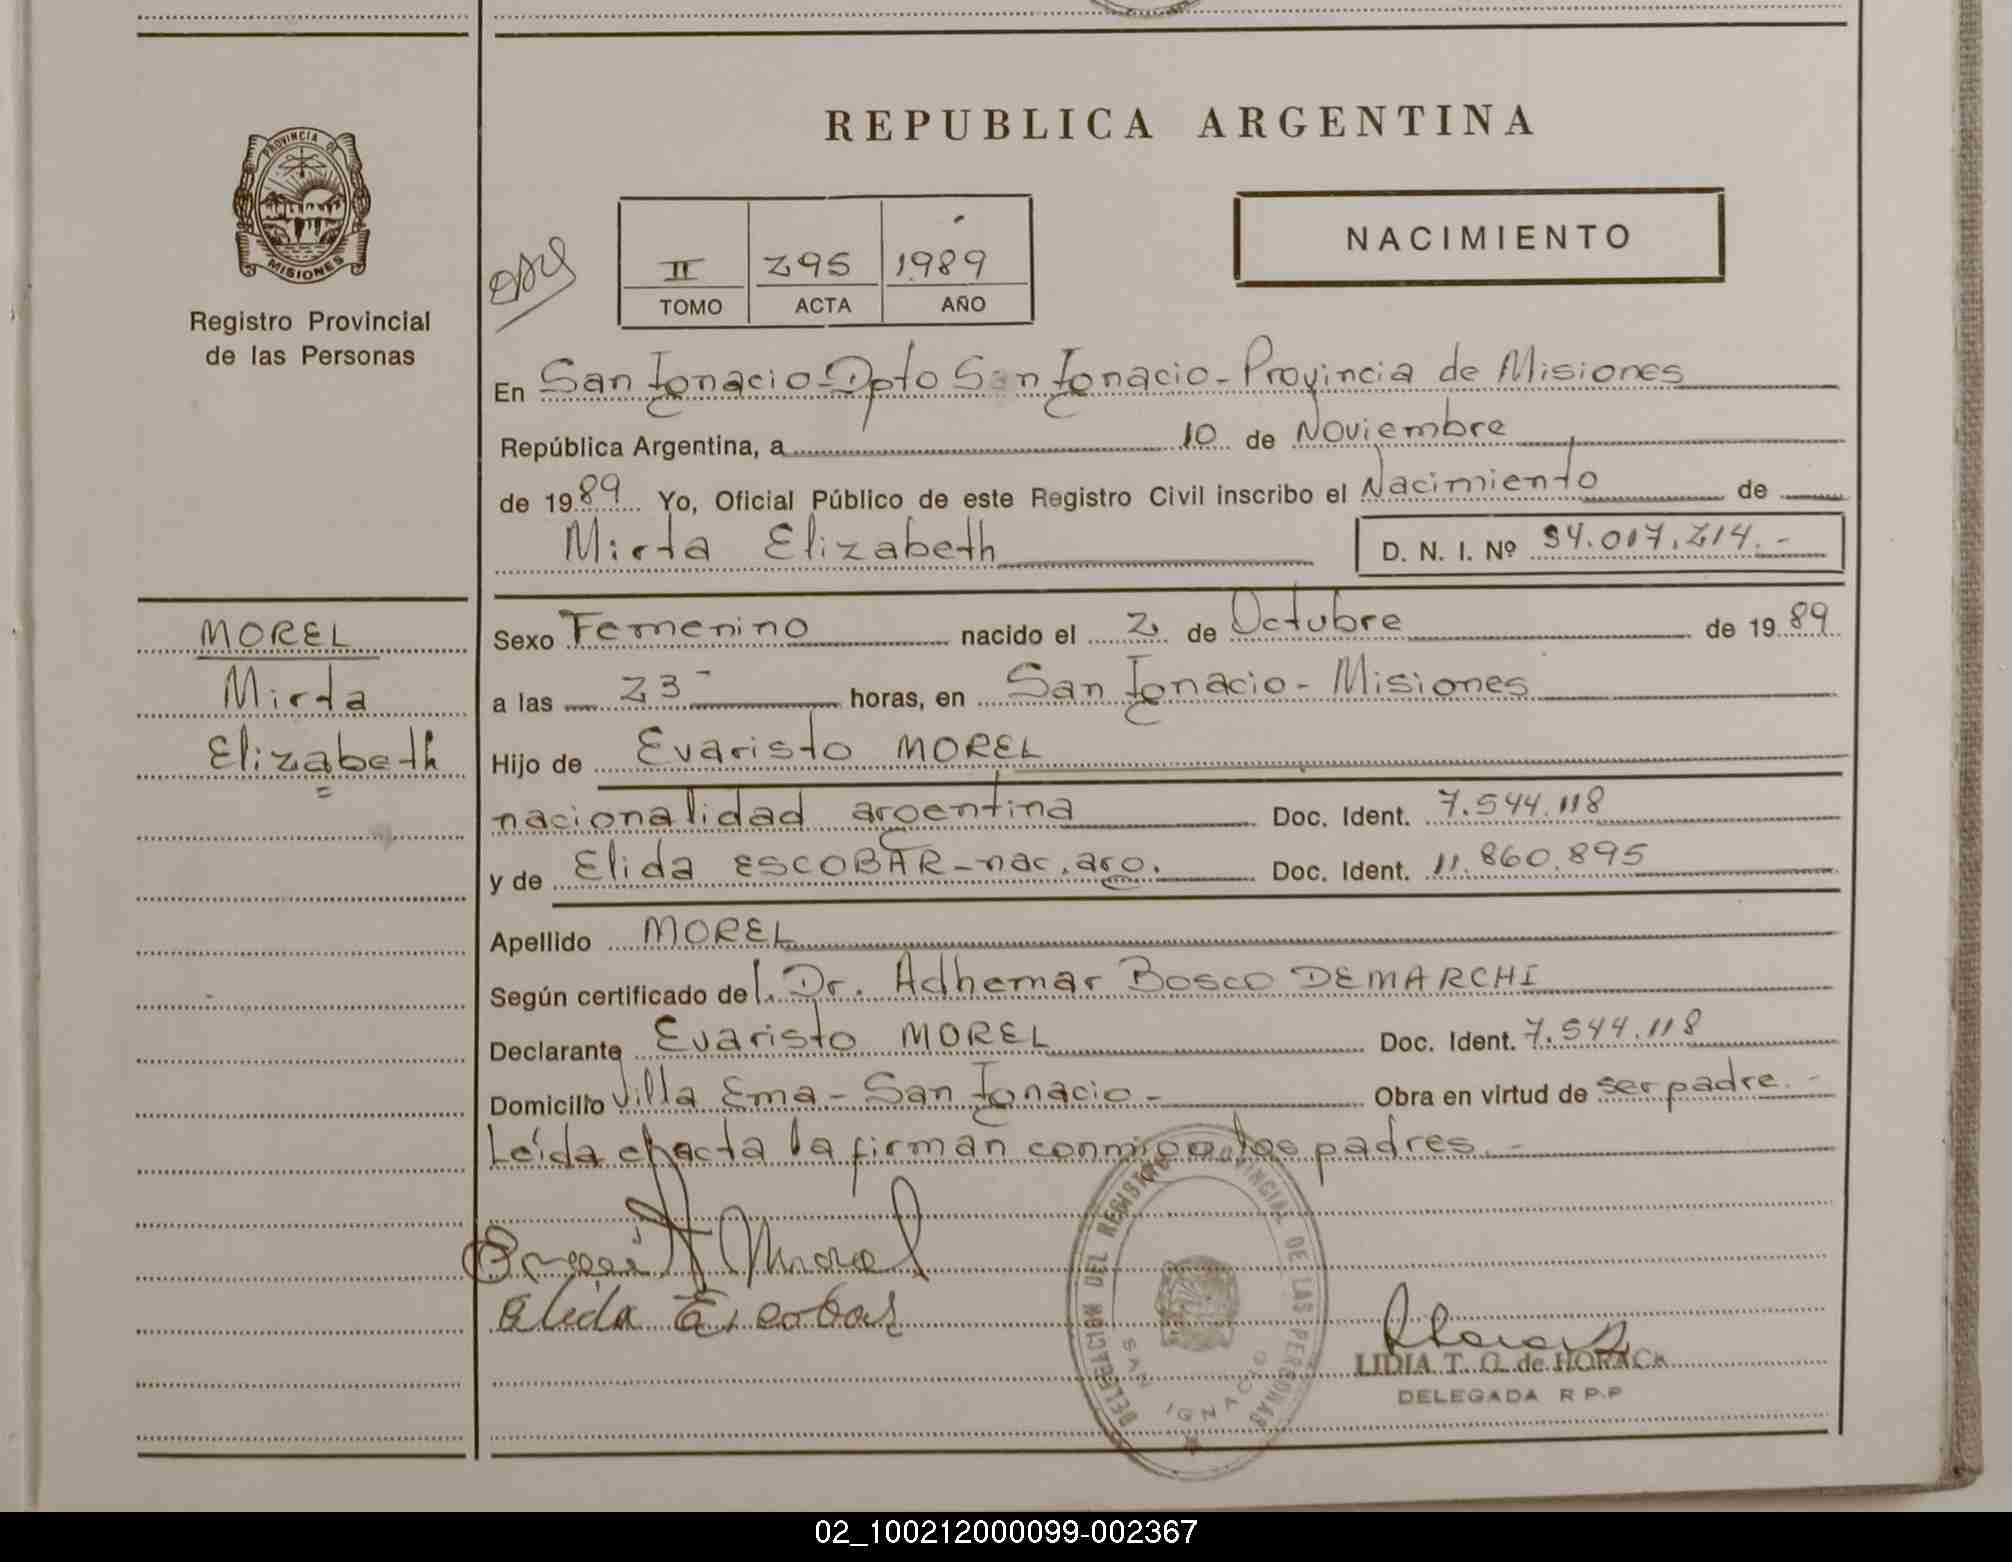 REPUBLICA ARGENTINA
PROVINCIA DE
MISIONES
Registro Provincial
de las Personas
NACIMIENTO
II 295 1989
TOMO ACTA AÑO
En San Ignacio-Dpto San Ignacio-Provincia de Misiones
República Argentina, a 10 de Noviembre
de 1989 Yo, Oficial Público de este Registro Civil inscribo el Nacimiento de
Mirta Elizabeth D. N. I. Nº 34.017.214.-
MOREL
Mirta
Elizabeth
Sexo Femenino nacido el 2 de Octubre de 1989
a las 23- horas, en San Ignacio-Misiones
Hijo de Evaristo MOREL
nacionalidad argentina Doc. Ident. 7.544.118
y de Elida ESCOBAR-nac.arg. Doc. Ident. 11.860.895
Apellido MOREL
Según certificado del Dr. Adhemar Bosco DEMARCHI
Declarante Evaristo MOREL Doc. Ident. 7.544.118
Domicilio Villa Ema-San Ignacio- Obra en virtud de ser padre.-
Leída el acta la firman conmigo los padres.-
Elida Escobar
DELEGACION DEL REGISTRO PROVINCIAL DE LAS PERSONAS
SAN IGNACIO
LIDIA T. O. de HORACK
DELEGADA R P.P
02_100212000099-002367